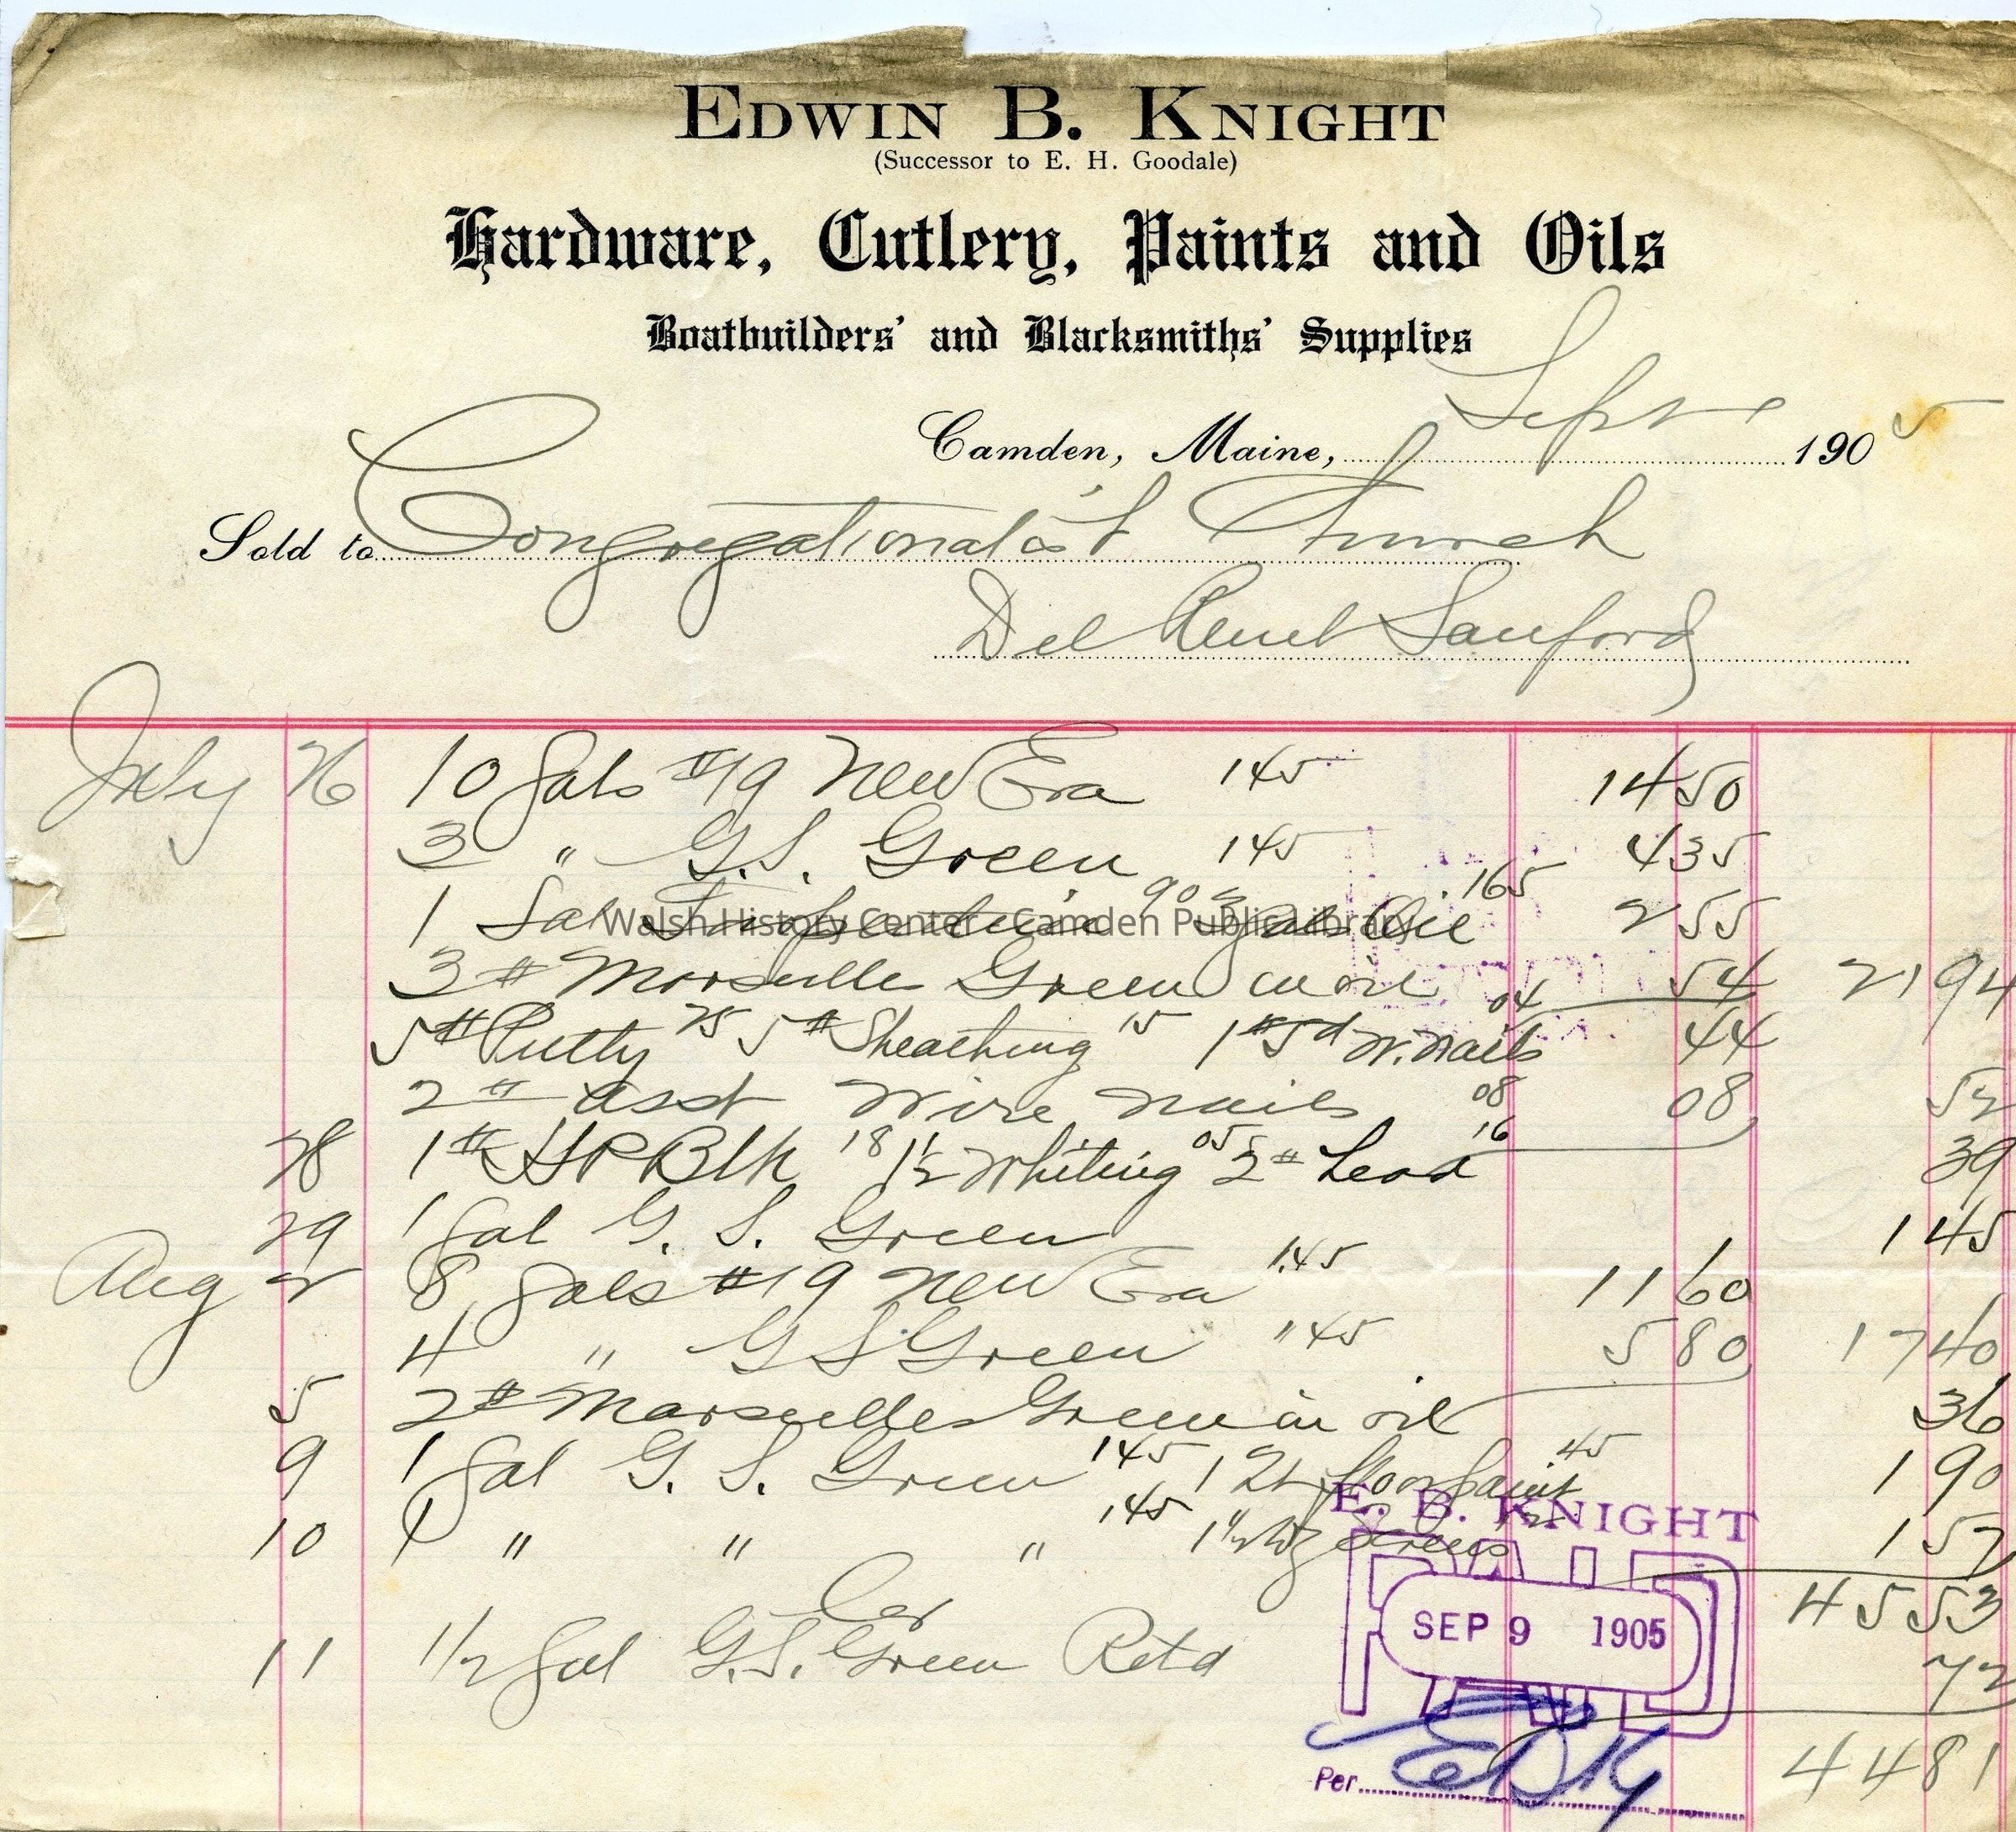 EDWIN B. KNIGHT
(Successor to E. H. Goodale)
Hardware, Cutlery, Paints and Oils
Boatbuilders' and Blacksmiths' Supplies
Camden, Maine, Sept 1905
Sold to Congregationalist Church
Del Sanford
July 26 10 Gals #19 New Era 145 1450
3 " G.S. Green 145 435
1 Gal Turpentine 90 gal Oil 165 255
3# Marseille Green in oil 54 2194
5# Putty 25 5# Sheathing 15 1# 5d W. nails 04 44
2# asst Wire nails 08 08 52
28 1# Blk 18 1 1/2 Whiting 05 2# Lead 16 39
29 1 Gal G. S. Green 145
Aug 2 8 Gals #19 New Era 1.45 1160
4 " G S Green " 45 580 1740
5 2# Marseilles Green in oil 36
9 1 Gal G. S. Green 145 1 Qt floor Paint 45 190
10 1 " " " 145 157
4553
Cr
11 1/2 Gal G.S. Green Retd 72
4481
E. B. KNIGHT
PAID
SEP 9 1905
Per EBK
Walsh History Center - Camden Public Library